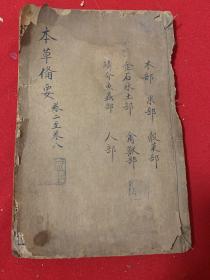 本草備要 卷二至卷八
木部 果部 穀菜部
金石水土部 禽獸部
鱗介魚蟲部 人部